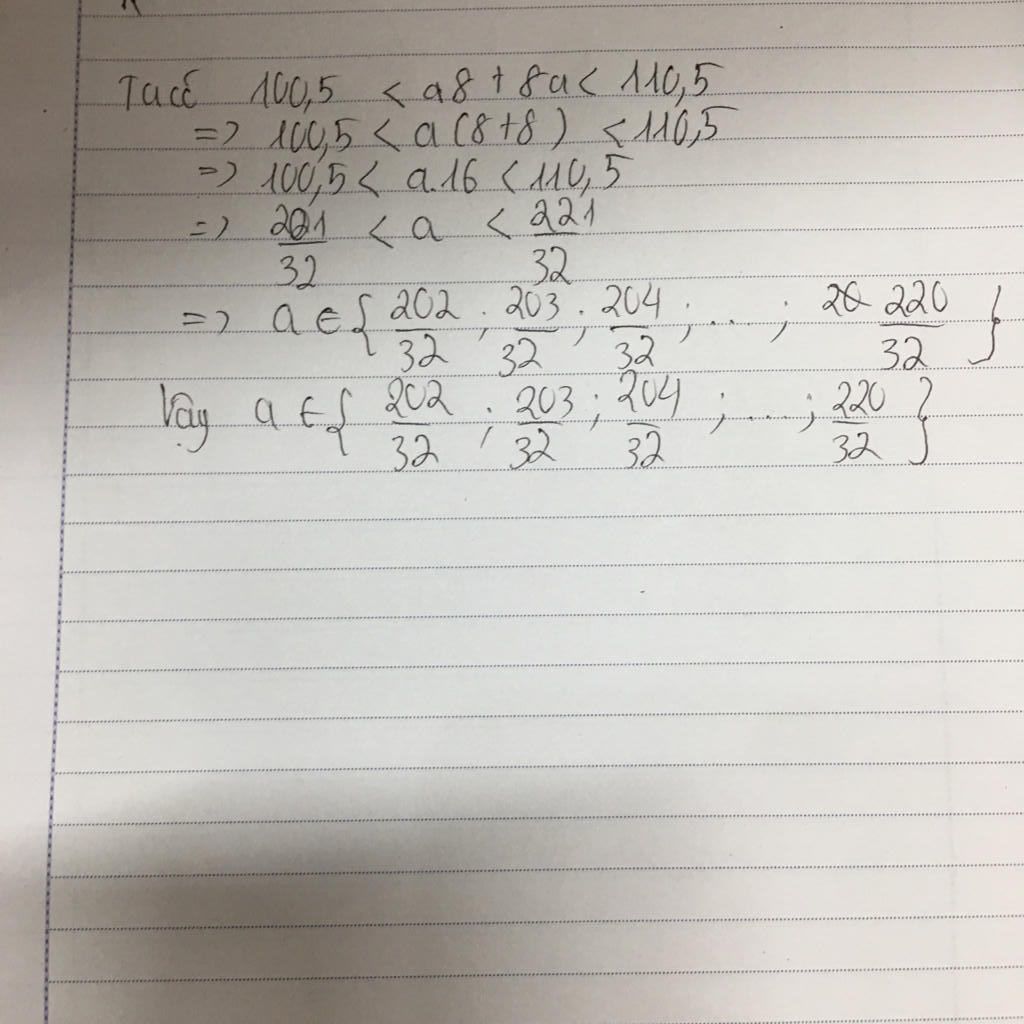 Ta có 100,5 < a8 + 8a < 110,5
=> 100,5 < a (8+8) < 110,5
=> 100,5 < a.16 < 110,5
=> 201/32 < a < 221/32
=> a ∈ { 202/32 ; 203/32 ; 204/32 ; ... ; 220/32 }
Vậy a ∈ { 202/32 ; 203/32 ; 204/32 ; ... ; 220/32 }